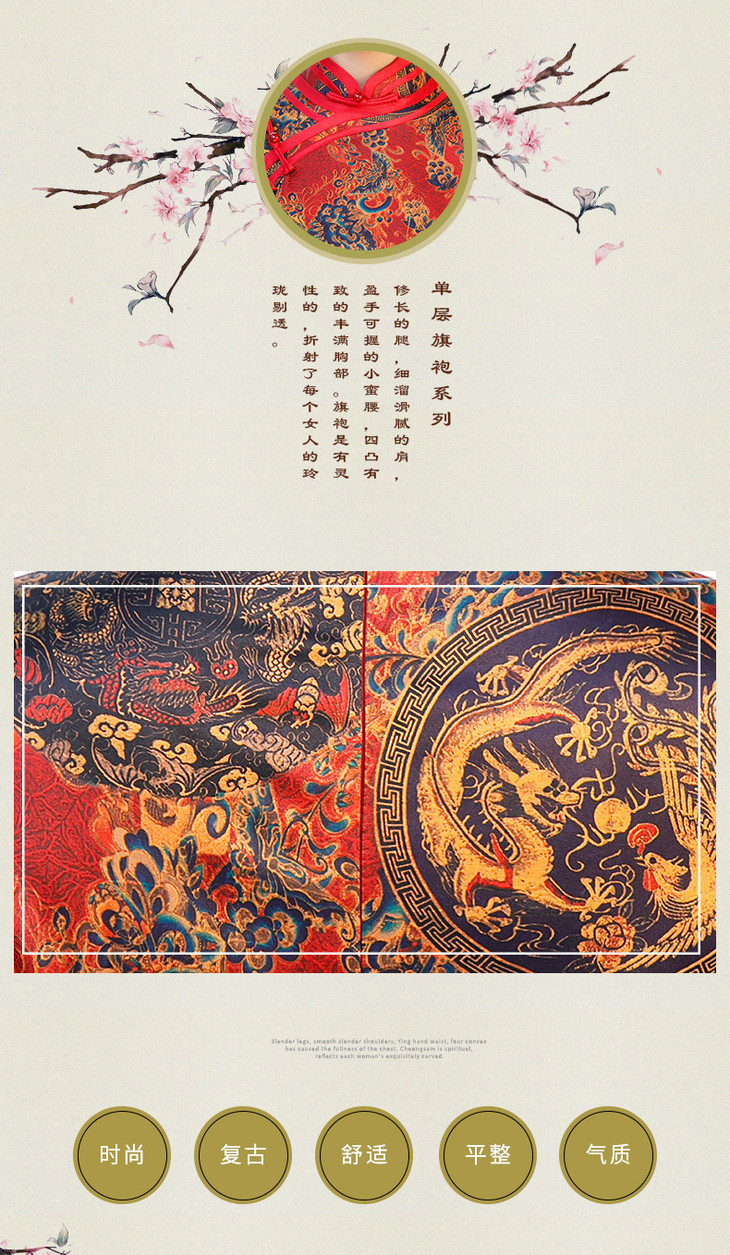 单层旗袍系列
修长的腿，细溜滑腻的肩，
盈手可握的小蛮腰，四凸有
致的丰满胸部。旗袍是有灵
性的，折射了每个女人的玲
珑剔透。
Slender legs, smooth slender shoulders, Ying hand waist, four convex
has caused the fullness of the chest. Cheongsam is spiritual,
reflects each woman's exquisitely carved.
时尚
复古
舒适
平整
气质